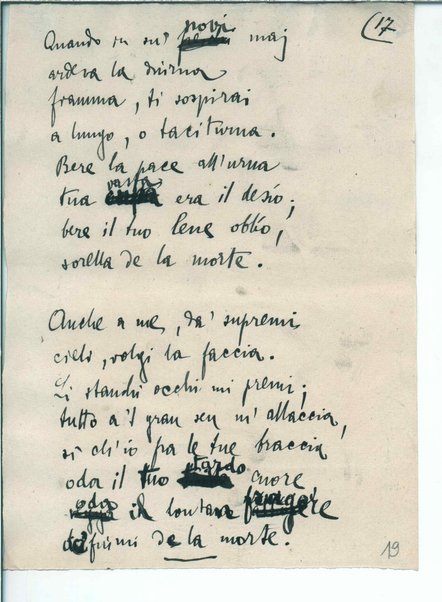 17
Quando su su' novi maj
ardeva la diurna
fiamma, ti sospirai
a lungo, o taciturna.
Bere la pace all'urna
tua vasta era il desìo;
bere il tuo lene oblìo,
sorella de la morte.
Anche a me, da' supremi
cieli, volgi la faccia.
Li stanchi occhi mi premi;
tutto a 'l gran sen m'allaccia,
sì ch'io fra le tue braccia
oda il tuo tardo cuore
oda il lontan fragore
de' fiumi de la morte.
19